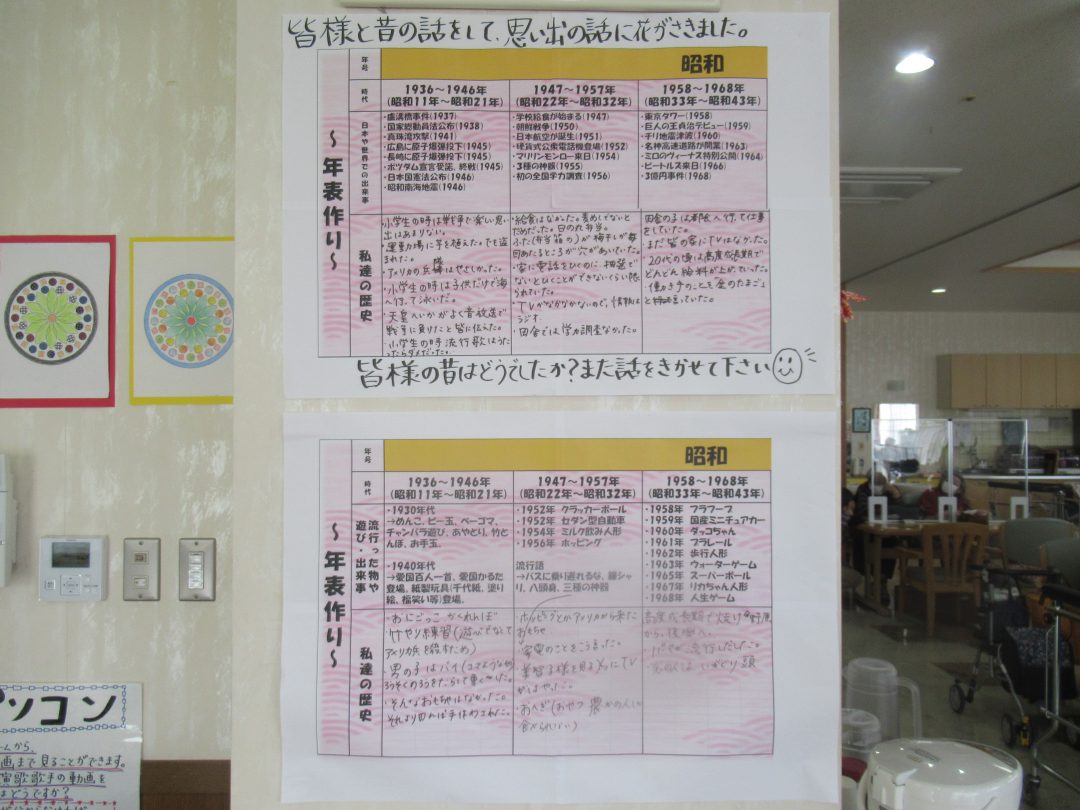 皆様と昔の話をして、思い出の話に花がさきました。
～年表作り～
年号
昭和
時代
1936～1946年
(昭和11年～昭和21年)
1947～1957年
(昭和22年～昭和32年)
1958～1968年
(昭和33年～昭和43年)
日本や世界での出来事
・盧溝橋事件(1937)
・国家総動員法公布(1938)
・真珠湾攻撃(1941)
・広島に原子爆弾投下(1945)
・長崎に原子爆弾投下(1945)
・ポツダム宣言受諾、終戦(1945)
・日本国憲法公布(1946)
・昭和南海地震(1946)
・学校給食が始まる(1947)
・朝鮮戦争(1950)
・日本航空が誕生(1951)
・硬貨式公衆電話機登場(1952)
・マリリンモンロー来日(1954)
・3種の神器(1955)
・初の全国学力調査(1956)
・東京タワー(1958)
・巨人の王貞治デビュー(1959)
・チリ地震津波(1960)
・名神高速道路が開業(1963)
・ミロのヴィーナス特別公開(1964)
・ビートルズ来日(1966)
・3億円事件(1968)
私達の歴史
・小学生の時は戦争で楽しい思い
出はあまりない。
・運動場に芋を植えた。でも盗
まれた。
・アメリカの兵隊はやさしかった。
・小学生の時は子供だけで海
へ行って泳いだ。
・天皇へいかがよく音放送で
戦争に負けたと皆に伝えた。
・小学生の時流行歌はうた
ったらダメだった。
・給食はなかった。麦めしでないと
だめだった。日の丸弁当。
ふた(弁当箱の)が梅干しが毎
回あたるところが穴があいていた。
・家に電話をひくのに、抽選で
ないとひくことができないくらい限
られていた。
・TVがなかなかないので、情報は
ラジオ。
・田舎では学力調査なかった。
・田舎の子は都会へ行って仕事
をしていた。
・まだ皆の家にTVはなかった。
・20代の頃は高度成長期で
どんどん給料が上がっていった。
・働き手のことを金のたまご
と言っていた。
皆様の昔はどうでしたか?また話をきかせて下さい
～年表作り～
年号
昭和
時代
1936～1946年
(昭和11年～昭和21年)
1947～1957年
(昭和22年～昭和32年)
1958～1968年
(昭和33年～昭和43年)
流行った物や
遊び・出来事
・1930年代
→めんこ、ビー玉、ベーゴマ、
チャンバラ遊び、あやとり、竹と
んぼ、お手玉、
・1940年代
→愛国百人一首、愛国かるた
登場、紙製玩具(千代紙、塗り
絵、福笑い等)登場、
・1952年 クラッカーボール
・1952年 セダン型自動車
・1954年 ミルク飲み人形
・1956年 ホッピング
流行語
→バスに乗り遅れるな、銀シャ
リ、八頭身、三種の神器
・1958年 フラフープ
・1959年 国産ミニチュアカー
・1960年 ダッコちゃん
・1961年 プラレール
・1962年 歩行人形
・1963年 ウォーターゲーム
・1965年 スーパーボール
・1967年 リカちゃん人形
・1968年 人生ゲーム
私達の歴史
・おにごっこ かくれんぼ
竹やり練習(遊びでなくて
アメリカ兵を殺すため)
・男の子はバイ
・そんなおもちゃはなかった。
ホッピングとかアメリカから来た
おもちゃ
・家電のことをこう言った。
・美智子様を見るためにTV
がはやった。
高度成長期で焼け野原
から、復興へ。
ソコン
ームから、
画まで見ることができます。
演歌歌手の動画を
はどうですか?